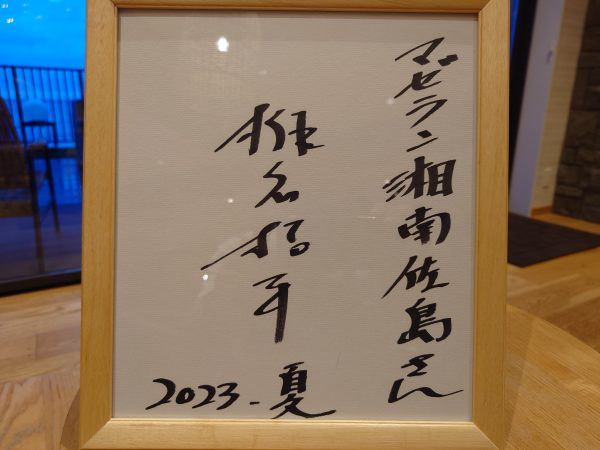 マゼラン湘南佐島さん
椎名桔平
2023.夏